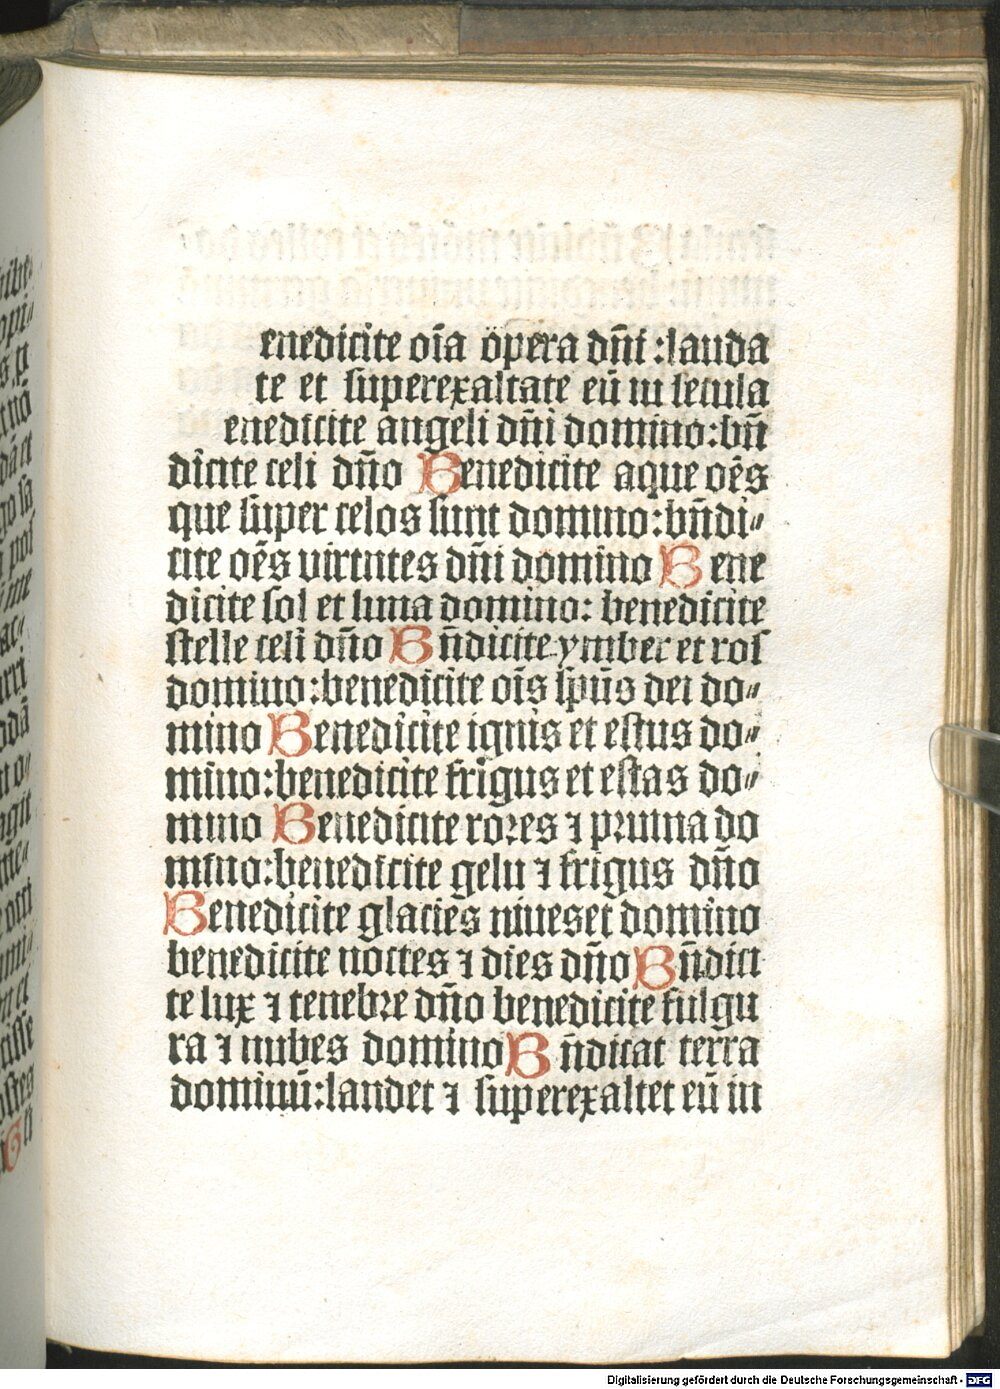 enedicite oīa opera dn̄i :lauda
te et superexaltate eū in secula
enedicite angeli dn̄i domino:bn̄
dicite celi dn̄o Benedicite aque oēs
que super celos sunt domino:bn̄di〃
cite oēs virtutes dn̄i domino Bene
dicite sol et luna domino: benedicite
stelle celi dn̄o Bn̄dicite ymber et ros
domino :benedicite oīs sp̄us dei do〃
mino Benedicite ignis et estus do〃
mino:benedicite frigus et estas do〃
mino Benedicite rores ⁊ pruina do
mino:benedicite gelu ⁊ frigus dn̄o
Benedicite glacies niueset domino
benedicite noctes ⁊ dies dn̄o Bn̄dici
te lux ⁊ tenebre dn̄o benedicite fulgu
ra ⁊ nubes domino Bn̄dicat terra
dominū:laudet ⁊ superexaltet eū in
Digitalisierung gefördert durch die Deutsche Forschungsgemeinschaft - DFG